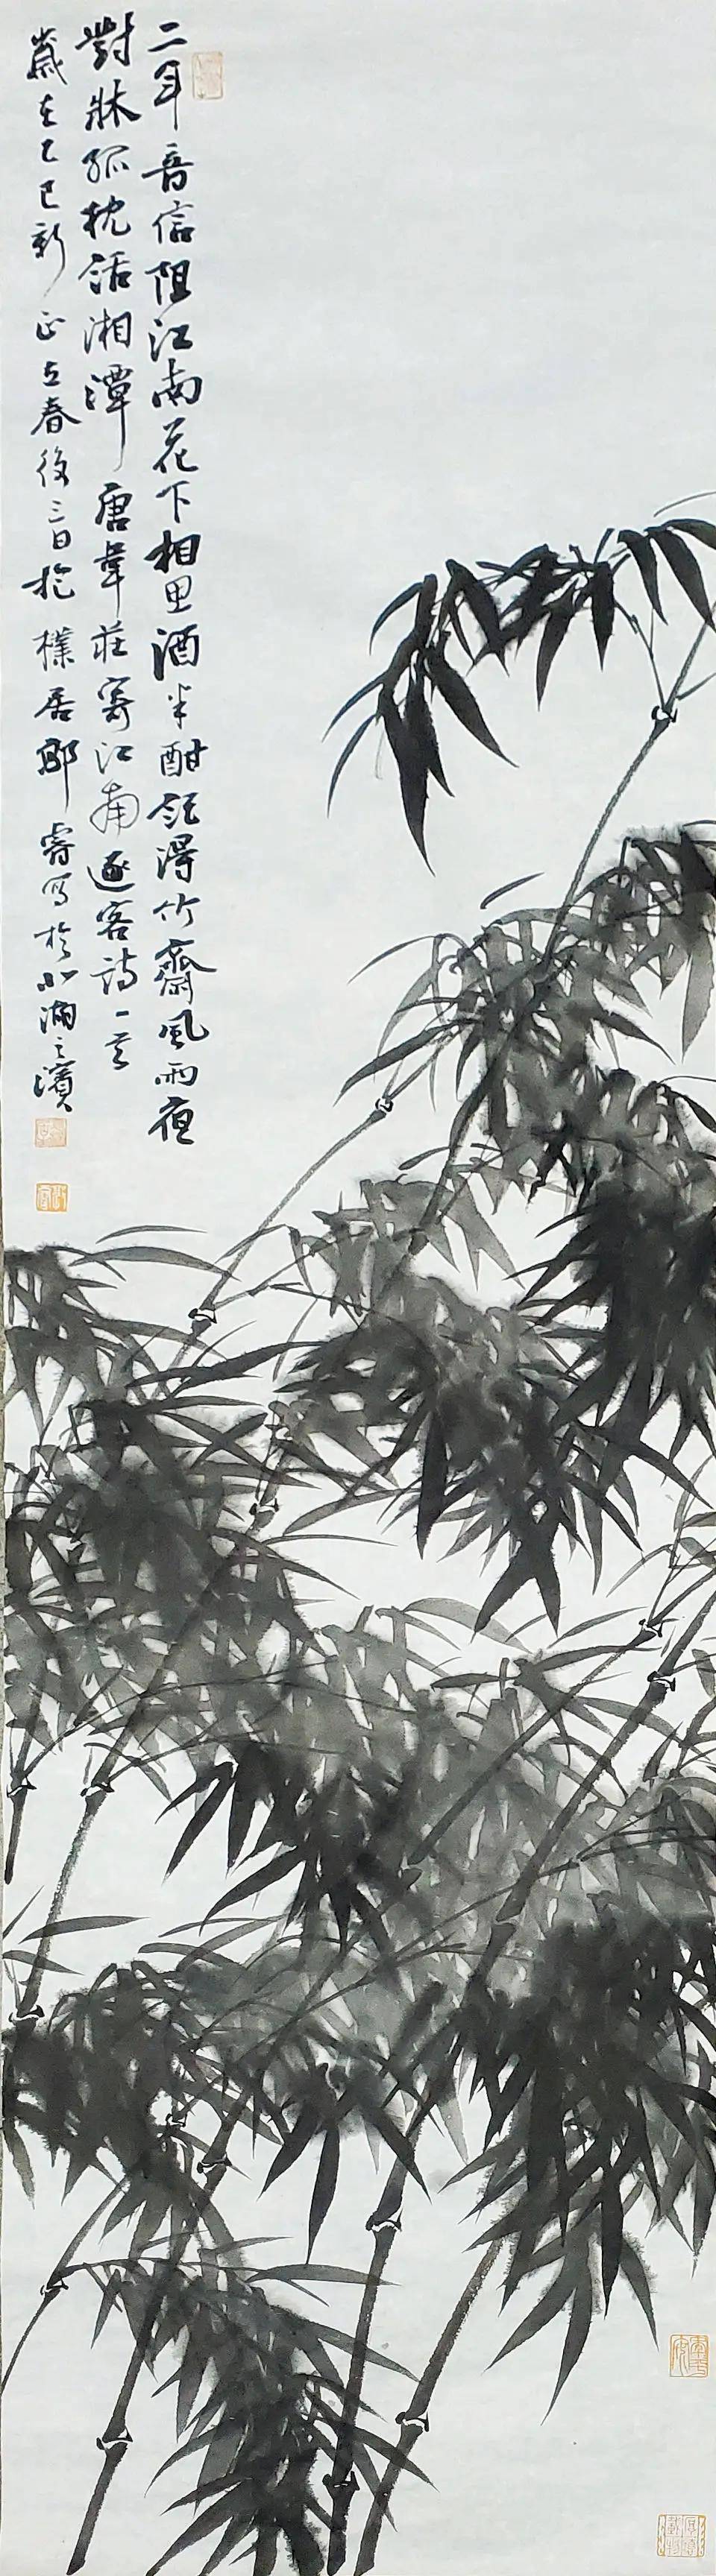 二年音信阻江南花下相思酒半酣記得竹齋風雨夜
對牀孤枕話湘潭 唐韋莊寄江南逐客詩一首
歲在乙巳新正立春後三日抱樸居鄢睿寫於小滿之濱